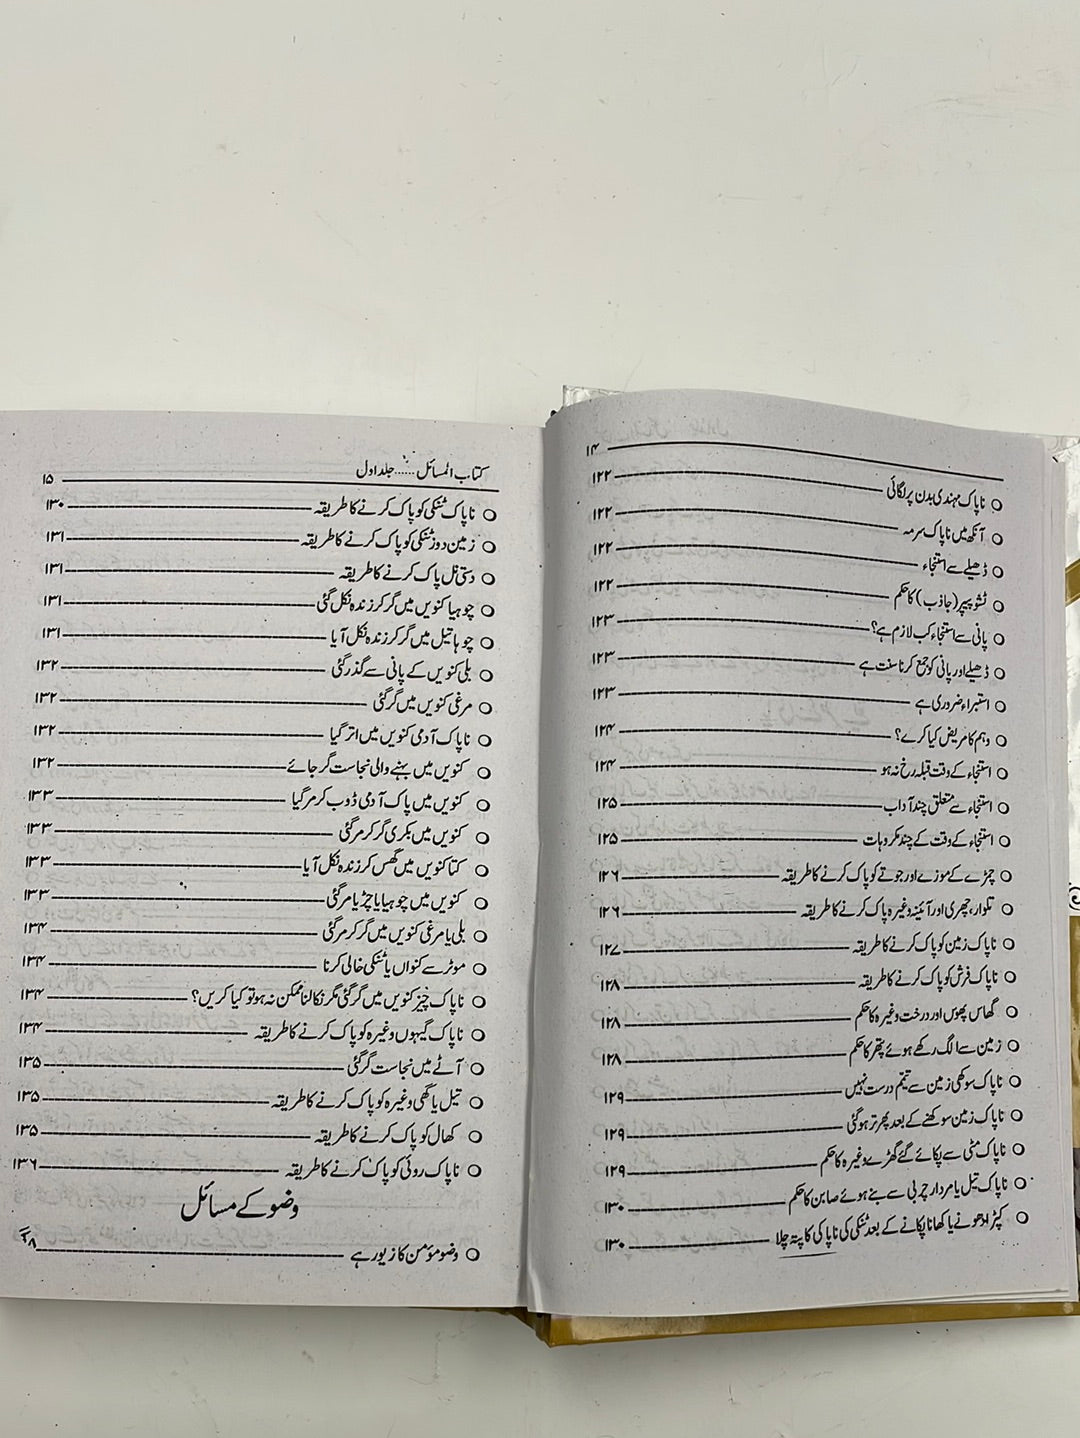 ۱۴
ناپاک مہندی بدن پر لگائی ۱۲۲
آنکھ میں ناپاک سرمہ ۱۲۲
ڈھیلے سے استنجاء ۱۲۲
ٹشو پیپر (جاذب) کا حکم ۱۲۲
پانی سے استنجاء کب لازم ہے؟ ۱۲۳
ڈھیلے اور پانی کو جمع کرنا سنت ہے ۱۲۳
استبراء ضروری ہے ۱۲۳
وہم کا مریض کیا کرے؟ ۱۲۴
استنجاء کے وقت قبلہ رخ نہ ہو ۱۲۴
استنجاء سے متعلق چند آداب ۱۲۵
استنجاء کے وقت کے چند مکروہات ۱۲۵
چمڑے کے موزے اور جوتے کو پاک کرنے کا طریقہ ۱۲۶
تلوار، چھری اور آئینہ وغیرہ پاک کرنے کا طریقہ ۱۲۶
ناپاک زمین کو پاک کرنے کا طریقہ ۱۲۷
ناپاک فرش کو پاک کرنے کا طریقہ ۱۲۸
گھاس پھوس اور درخت وغیرہ کا حکم ۱۲۸
زمین سے الگ رکھے ہوئے پتھر کا حکم ۱۲۸
ناپاک سوکھی زمین سے تیمم درست نہیں ۱۲۹
ناپاک زمین سوکھنے کے بعد پھر تر ہوگئی ۱۲۹
ناپاک مٹی سے پکائے گئے گھڑے وغیرہ کا حکم ۱۲۹
ناپاک تیل یا مردار چربی سے بنے ہوئے صابن کا حکم ۱۳۰
کپڑا دھونے یا کھانا پکانے کے بعد ٹنکی کی ناپاکی کا پتہ چلا ۱۳۰
کتاب المسائل...... جلد اول ۱۵
ناپاک ٹنکی کو پاک کرنے کا طریقہ ۱۳۰
زمین دوز ٹنکی کو پاک کرنے کا طریقہ ۱۳۱
دستی نل پاک کرنے کا طریقہ ۱۳۱
چوہیا کنویں میں گر کر زندہ نکل گئی ۱۳۱
چوہا تیل میں گر کر زندہ نکل آیا ۱۳۱
بلی کنویں کے پانی سے گذر گئی ۱۳۲
مرغی کنویں میں گر گئی ۱۳۲
ناپاک آدمی کنویں میں اتر گیا ۱۳۲
کنویں میں بہنے والی نجاست گر جائے ۱۳۲
کنویں میں پاک آدمی ڈوب کر مر گیا ۱۳۳
کنویں میں بکری گر کر مر گئی ۱۳۳
کتا کنویں میں گھس کر زندہ نکل آیا ۱۳۳
کنویں میں چوہیا یا چڑیا مر گئی ۱۳۳
بلی یا مرغی کنویں میں گر کر مر گئی ۱۳۴
موٹر سے کنواں یا ٹنکی خالی کرنا ۱۳۴
ناپاک چیز کنویں میں گر گئی مگر نکالنا ممکن نہ ہو تو کیا کریں؟ ۱۳۴
ناپاک گیہوں وغیرہ کو پاک کرنے کا طریقہ ۱۳۴
آٹے میں نجاست گر گئی ۱۳۵
تیل یا گھی وغیرہ کو پاک کرنے کا طریقہ ۱۳۵
کھال کو پاک کرنے کا طریقہ ۱۳۵
ناپاک روئی کو پاک کرنے کا طریقہ ۱۳۶
وضو کے مسائل
وضو مؤمن کا زیور ہے